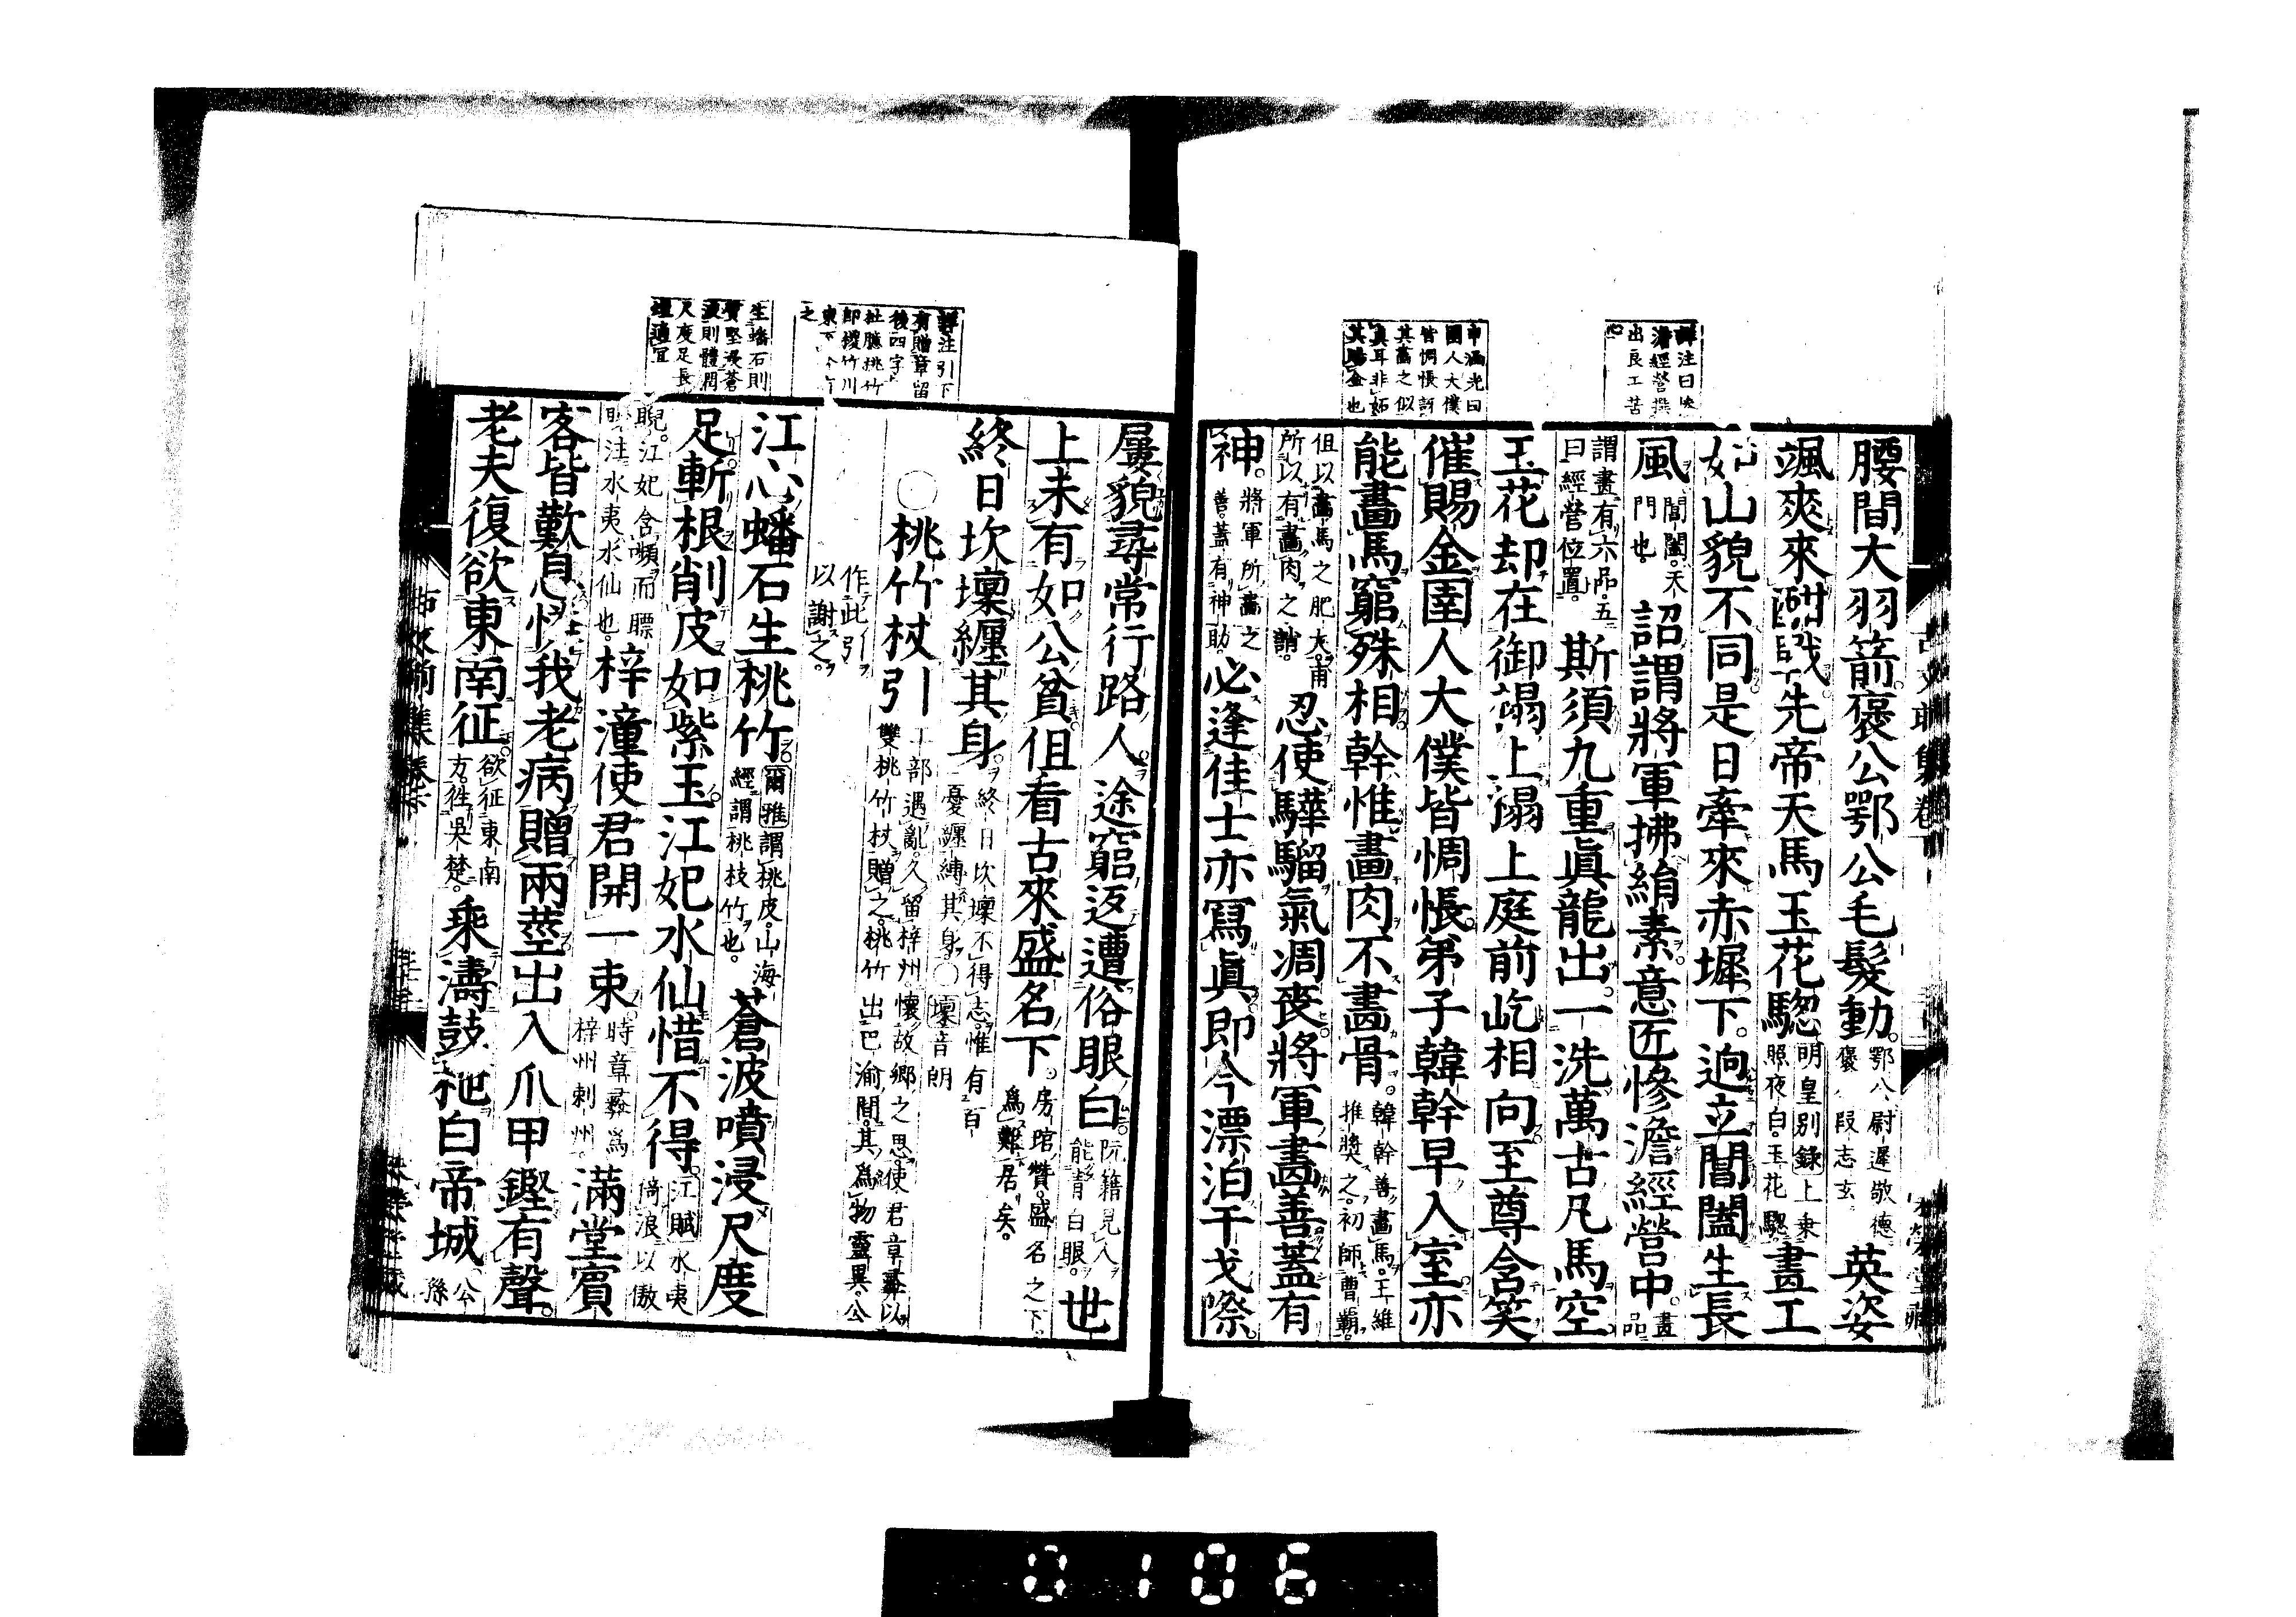 腰間大羽箭褒公鄂公毛髮動鄂公尉遲敬德褒 段志玄英姿
颯爽來酣戰先帝天馬玉花驄明皇別錄上乗照夜白玉花驄畫工
如山貌不同是日牽來赤墀下逈立閶闔生長
風閶闔天門也詔謂將軍拂絹素意匠慘澹經營中畫品
謂畫有六品五曰經營位置斯須九重眞龍出一洗萬古凡馬空
玉花却在御榻上榻上庭前屹相向至尊含笑
催賜金圉人大僕皆惆悵弟子韓幹早入室亦
能畫馬窮殊相幹惟畫肉不畫骨韓幹善畫馬王維推奬之初師曹霸
伹以畫馬之肥大甫所以有畫肉之誚忍使驊騮氣凋喪將軍畫善蓋有
神將軍所畫之善蓋有神助必逢佳士亦寫眞即今漂泊干戈際
詳注曰慘澹經營撰出良工苦心
申涵光曰圉人大僕皆惆悵訝其畫之似眞耳非妬其賜金也
屢貌尋常行路人途窮返遭俗眼白阮籍見人能靑白眼世
上未有如公貧伹看古來盛名下房琯贊盛名之下爲難居矣
終日坎壈纏其身終日坎壈不得志惟有百憂纏縛其身〇壈音朗
〇桃竹杖引工部遇亂久留梓州懷故鄉之思使君章彝以雙桃竹杖贈之桃竹出巴渝間其爲物靈異公
作此引以謝之
江心蟠石生桃竹爾雅謂桃皮山海經謂桃枝竹也蒼波噴浸尺度
足斬根削皮如紫玉江妃水仙惜不得江賦水夷倚浪以傲
睨江妃含嚬而瞟眇注水夷水仙也梓潼使君開一束時章彝爲梓州刺州滿堂賓
客皆歎息怜我老病贈兩莖出入爪甲鏗有聲
老夫復欲東南征欲征東南方徃吳楚乘濤鼓枻白帝城公孫
詳注引下有贈章留後四字杜臆桃竹即椶竹川東
生蟠石則質堅浸蒼波則體潤尺度足長短適宜
0106